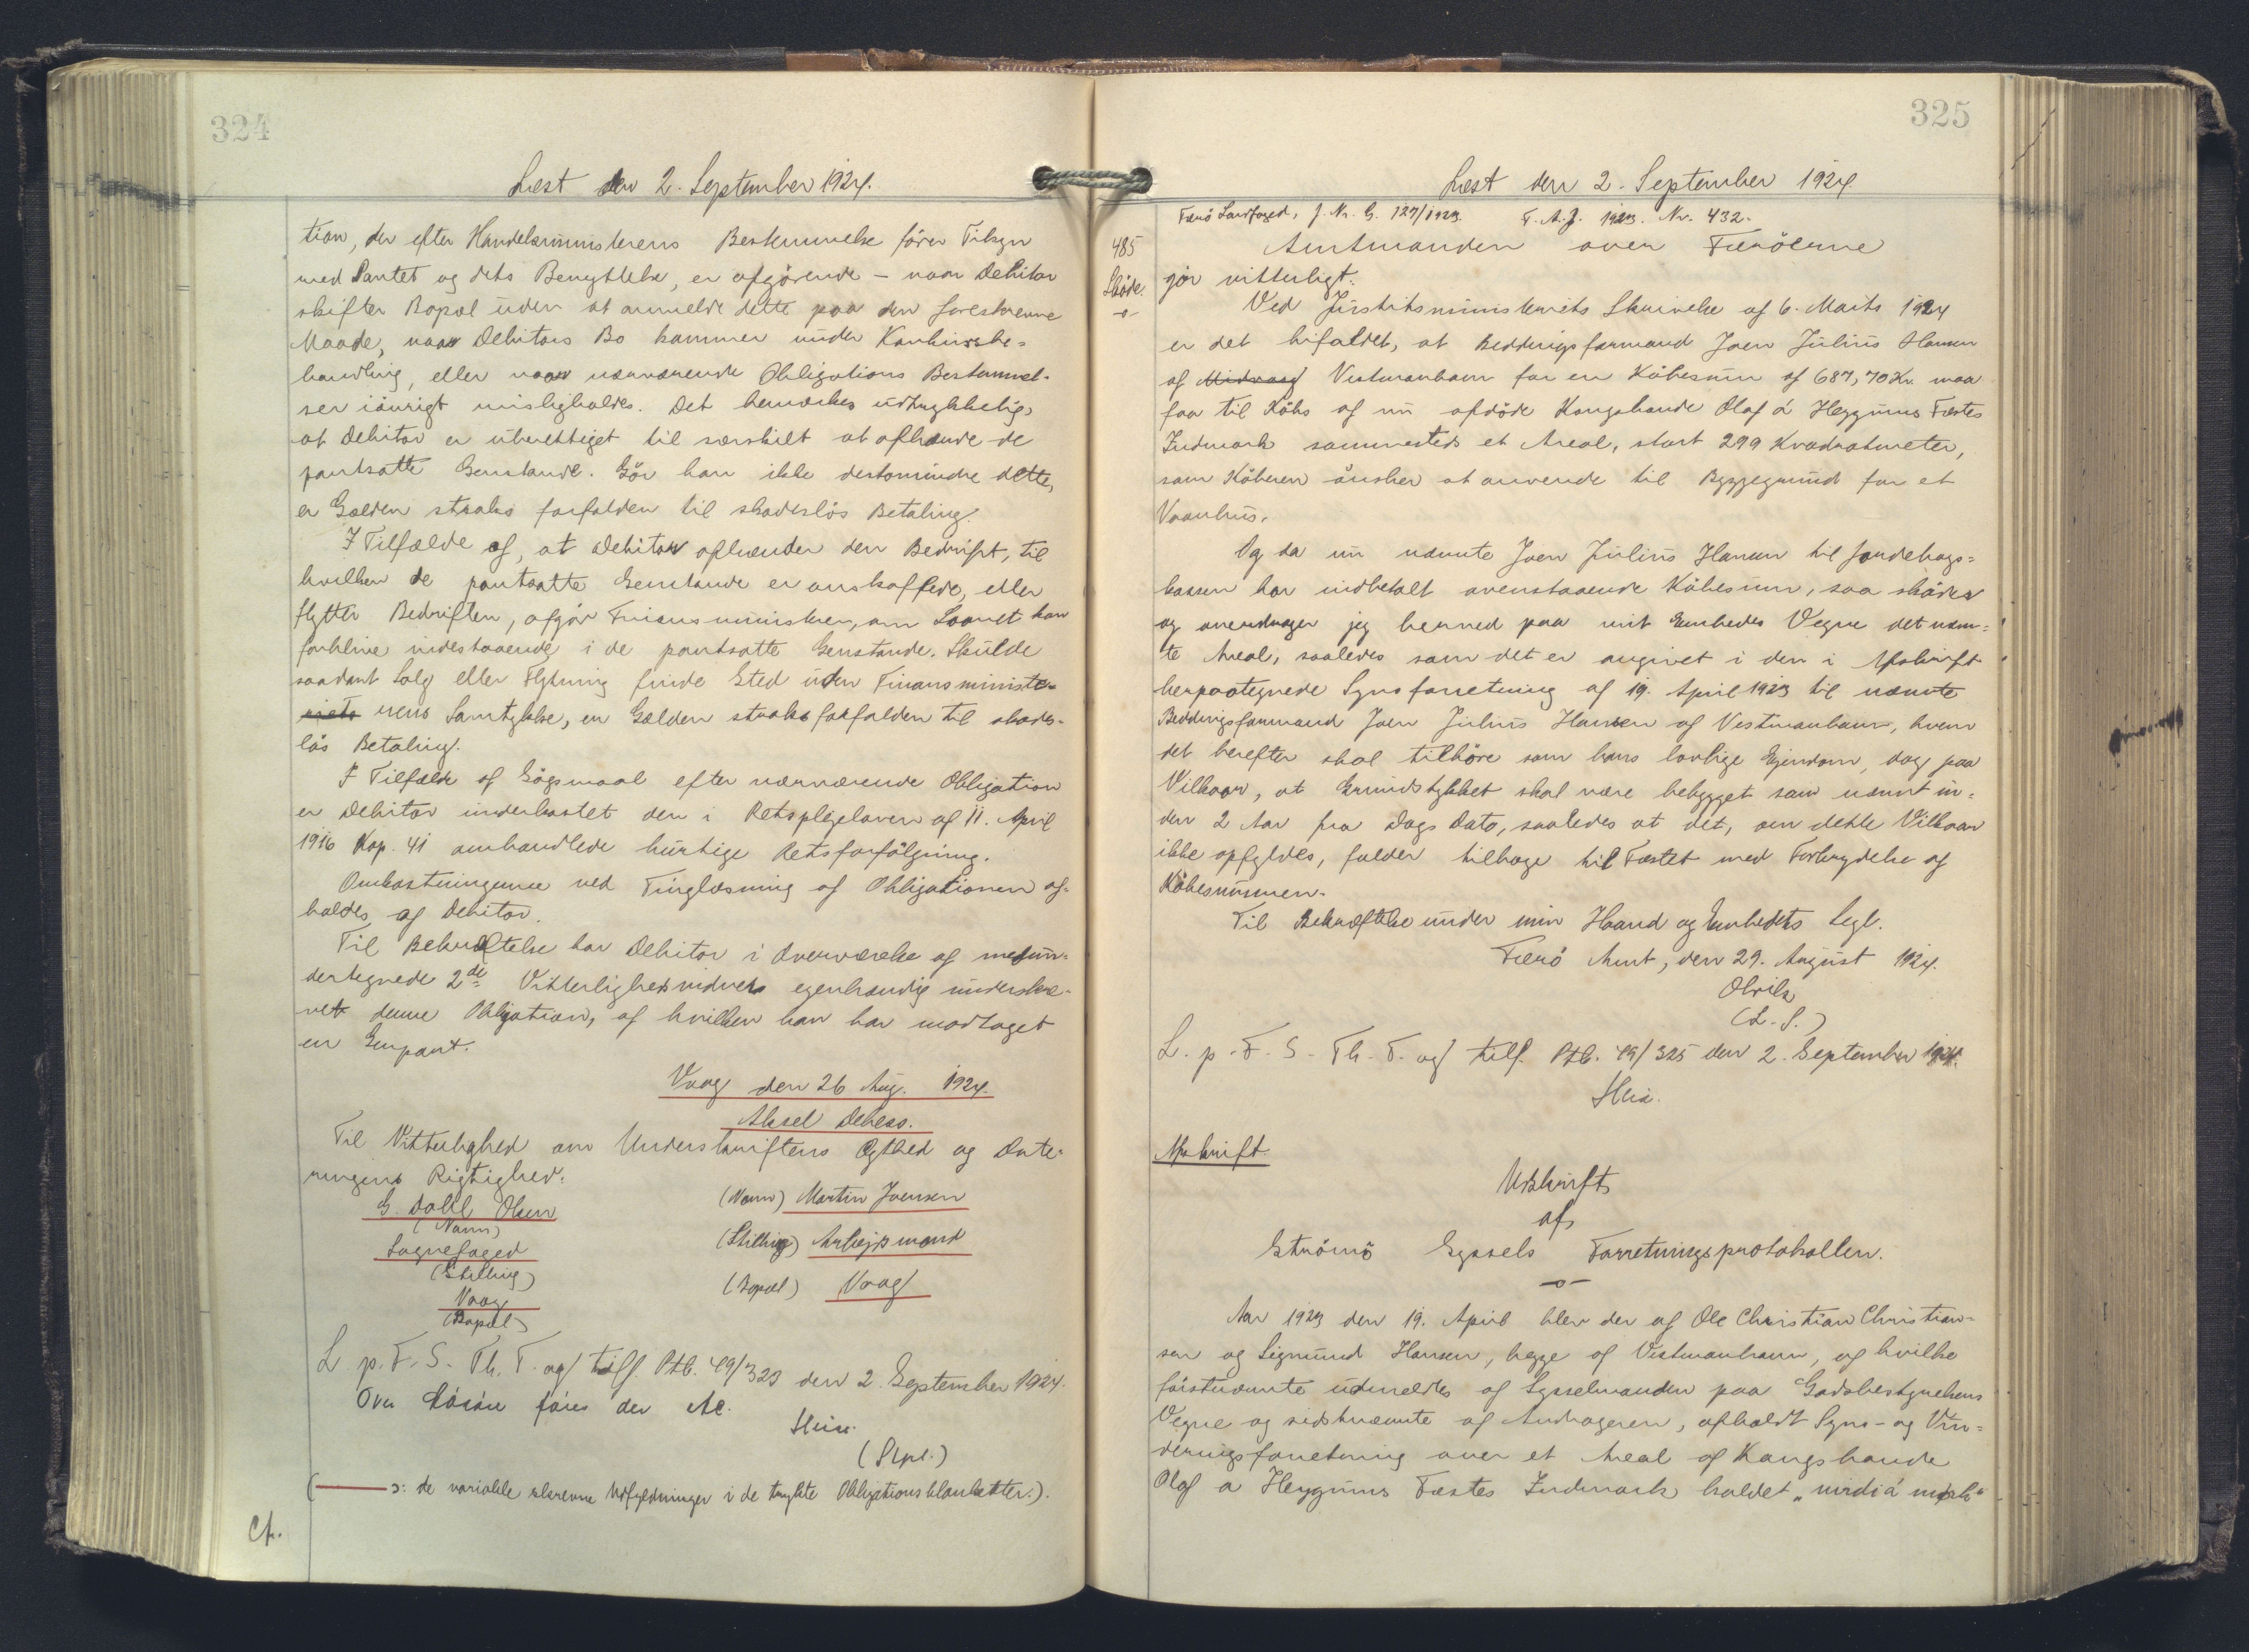 324
Læst den 2. September 1924.
tion, der efter Handelsministerens Bestemmelse fører Tilsyn
med Pantet og dets Benyttelse, er afgörende - naar Debitor
skifter Bopæl uden at anmelde dette paa den foreskrevne
Maade, naar Debitors Bo kommer under Konkursbe-
handling, eller naar nærværende Obligations Bestemmel-
ser iøvrigt misligholdes. Det bemærkes udtrykkelig,
at Debitor er uberettiget til særskilt at afhænde de
pantsatte Genstande. Gör han ikke destomindre dette,
er Gælden straks forfalden til skadeslös Betaling.
I Tilfælde af, at Debitor afhænder den Bedrift, til
hvilken de pantsatte Genstande er anskaffede, eller
flytter Bedriften, afgör Finansministeren, om Laanet kan
forblive indestaaende i de pantsatte Genstande. Skulde
saadant Salg eller Flytning finde Sted uden Finansministe-
riets rens Samtykke, er Gælden straks forfalden til skades-
lös Betaling.
I Tilfælde af Sögsmaal efter nærværende Obligation
er Debitor underkastet den i Retsplejeloven af 11. April
1916 Kap. 41 omhandlede hurtige Retsforfölgning.
Omkostningerne ved Tinglæsning af Obligationen af-
holdes af Debitor.
Til Bekræftelse har Debitor i Overværelse af medun-
dertegnede 2de Vitterlighedsvidner egenhændig underskre-
vet denne Obligation, af hvilken han har modtaget
en Genpart.
Vaag den 26 Aug. 1924.
Aksel Debess.
Til Vitterlighed om Underskriftens Ægthed og Date-
ringens Rigtighed:
G. Dahl Olsen
(Navn) Martin Joensen
(Navn)
Sognefoged
(Stilling) Arbejdsmand
(Stilling)
Vaag
(Bopæl) Vaag
(Bopæl)
L. p. F. S. Th. T. og tilf. Ptb. 49/323 den 2. September 1924.
Over Løsøre føres der Al.
Heise.
(Stpl.)
( ——— ɔ: de variable skrevne Udfyldninger i de trykte Obligationsblanketter.).
Cfr.
325
Læst den 2. September 1924.
Færö Landfoged, J. Nr. G. 127/1923. F. A. J. 1923. Nr. 432.
485
Skøde.
-o-
Amtmanden over Færöerne
gör vitterligt:
Ved Justitsministeriets Skrivelse af 6. Marts 1924
er det bifaldet, at Beddingsformand Joen Julius Hansen
af Midvaag Vestmanhavn for en Købesum af 687,70 Kr. maa
faa til Købs af nu afdöde Kongsbonde Olaf á Heygums Fæstes
Indmark sammesteds et Areal, stort 299 Kvadratmeter,
som Köberen önsker at anvende til Byggegrund for et
Vaanhus.
Og da nu nævnte Joen Julius Hansen til Jordebogs-
kassen har indbetalt ovenstaaende Købesum, saa skøder
og overdrager jeg herved paa mit Embedes Vegne det nævn-
te Areal, saaledes som det er angivet i den i Afskrift
herpaategnede Synsforretning af 19. April 1923 til nævnte
Beddingsformand Joen Julius Hansen af Vestmanhavn, hvem
det herefter skal tilhöre som hans lovlige Ejendom, dog paa
Vilkaar, at Grundstykket skal være bebygget som nævnt in-
den 2 Aar fra Dags Dato, saaledes at det, om dette Vilkaar
ikke opfyldes, falder tilbage til Fæstet med Fortrydelse af
Købesummen.
Til Bekræftelse under min Haand og Embedets Segl.
Færö Amt, den 29. August 1924.
Olrik
(L. S.)
L. p. F. S. Th. T. og tilf. Ptb. 49/325 den 2. September 1924.
Heise.
Afskrift
Udskrift
af
Strömö Syssels Forretningsprotokollen.
-o-
Aar 1923 den 19. April blev der af Ole Christian Christian-
sen og Sigmund Hansen, begge af Vestmanhavn, af hvilke
förstnævnte udmeldtes af Sysselmanden paa Godsbestyrelsens
Vegne og sidstnævnte af Andrageren, afholdt Syns- og Vur-
deringsforretning over et Areal af Kongsbonde
Olaf a Heygums Fæstes Indmark kaldet „nirdi á mørk"